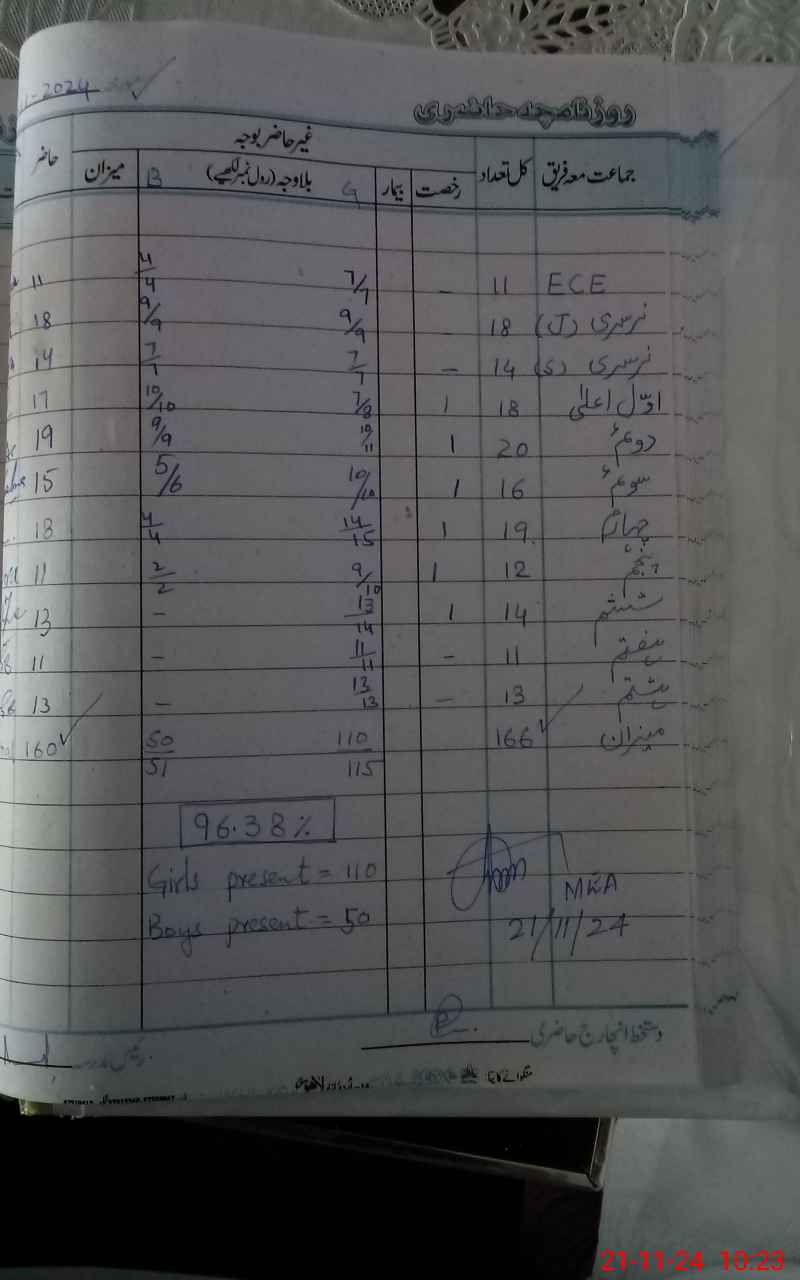 2024
روزنامچہ حاضری
جماعت معہ فریق کل تعداد غیر حاضر بوجہ حاضر
رخصت بیمار بلاوجہ (رول نمبر لکھیے) G B میزان
ECE 11 - 7/7 4/4 11
نرسری (ل) 18 - 9/9 9/9 18
نرسری (ی) 14 - 7/7 7/7 14
اوّل اعلیٰ 18 1 7/8 10/10 17
دوئم 20 1 10/11 9/9 19
سوئم 16 1 10/10 5/6 15
چہارم 19 1 14/15 4/4 18
پنجم 12 1 9/10 2/2 11
ششم 14 1 13/14 - 13
ہفتم 11 - 11/11 - 11
ہشتم 13 - 13/13 - 13
میزان 166 110/115 50/51 160
96.38%
Girls present = 110
MEA
Boys present = 50
21/11/24
دستخط انچارج حاضری
رئیس مدرسہ
21-11-24 10:23